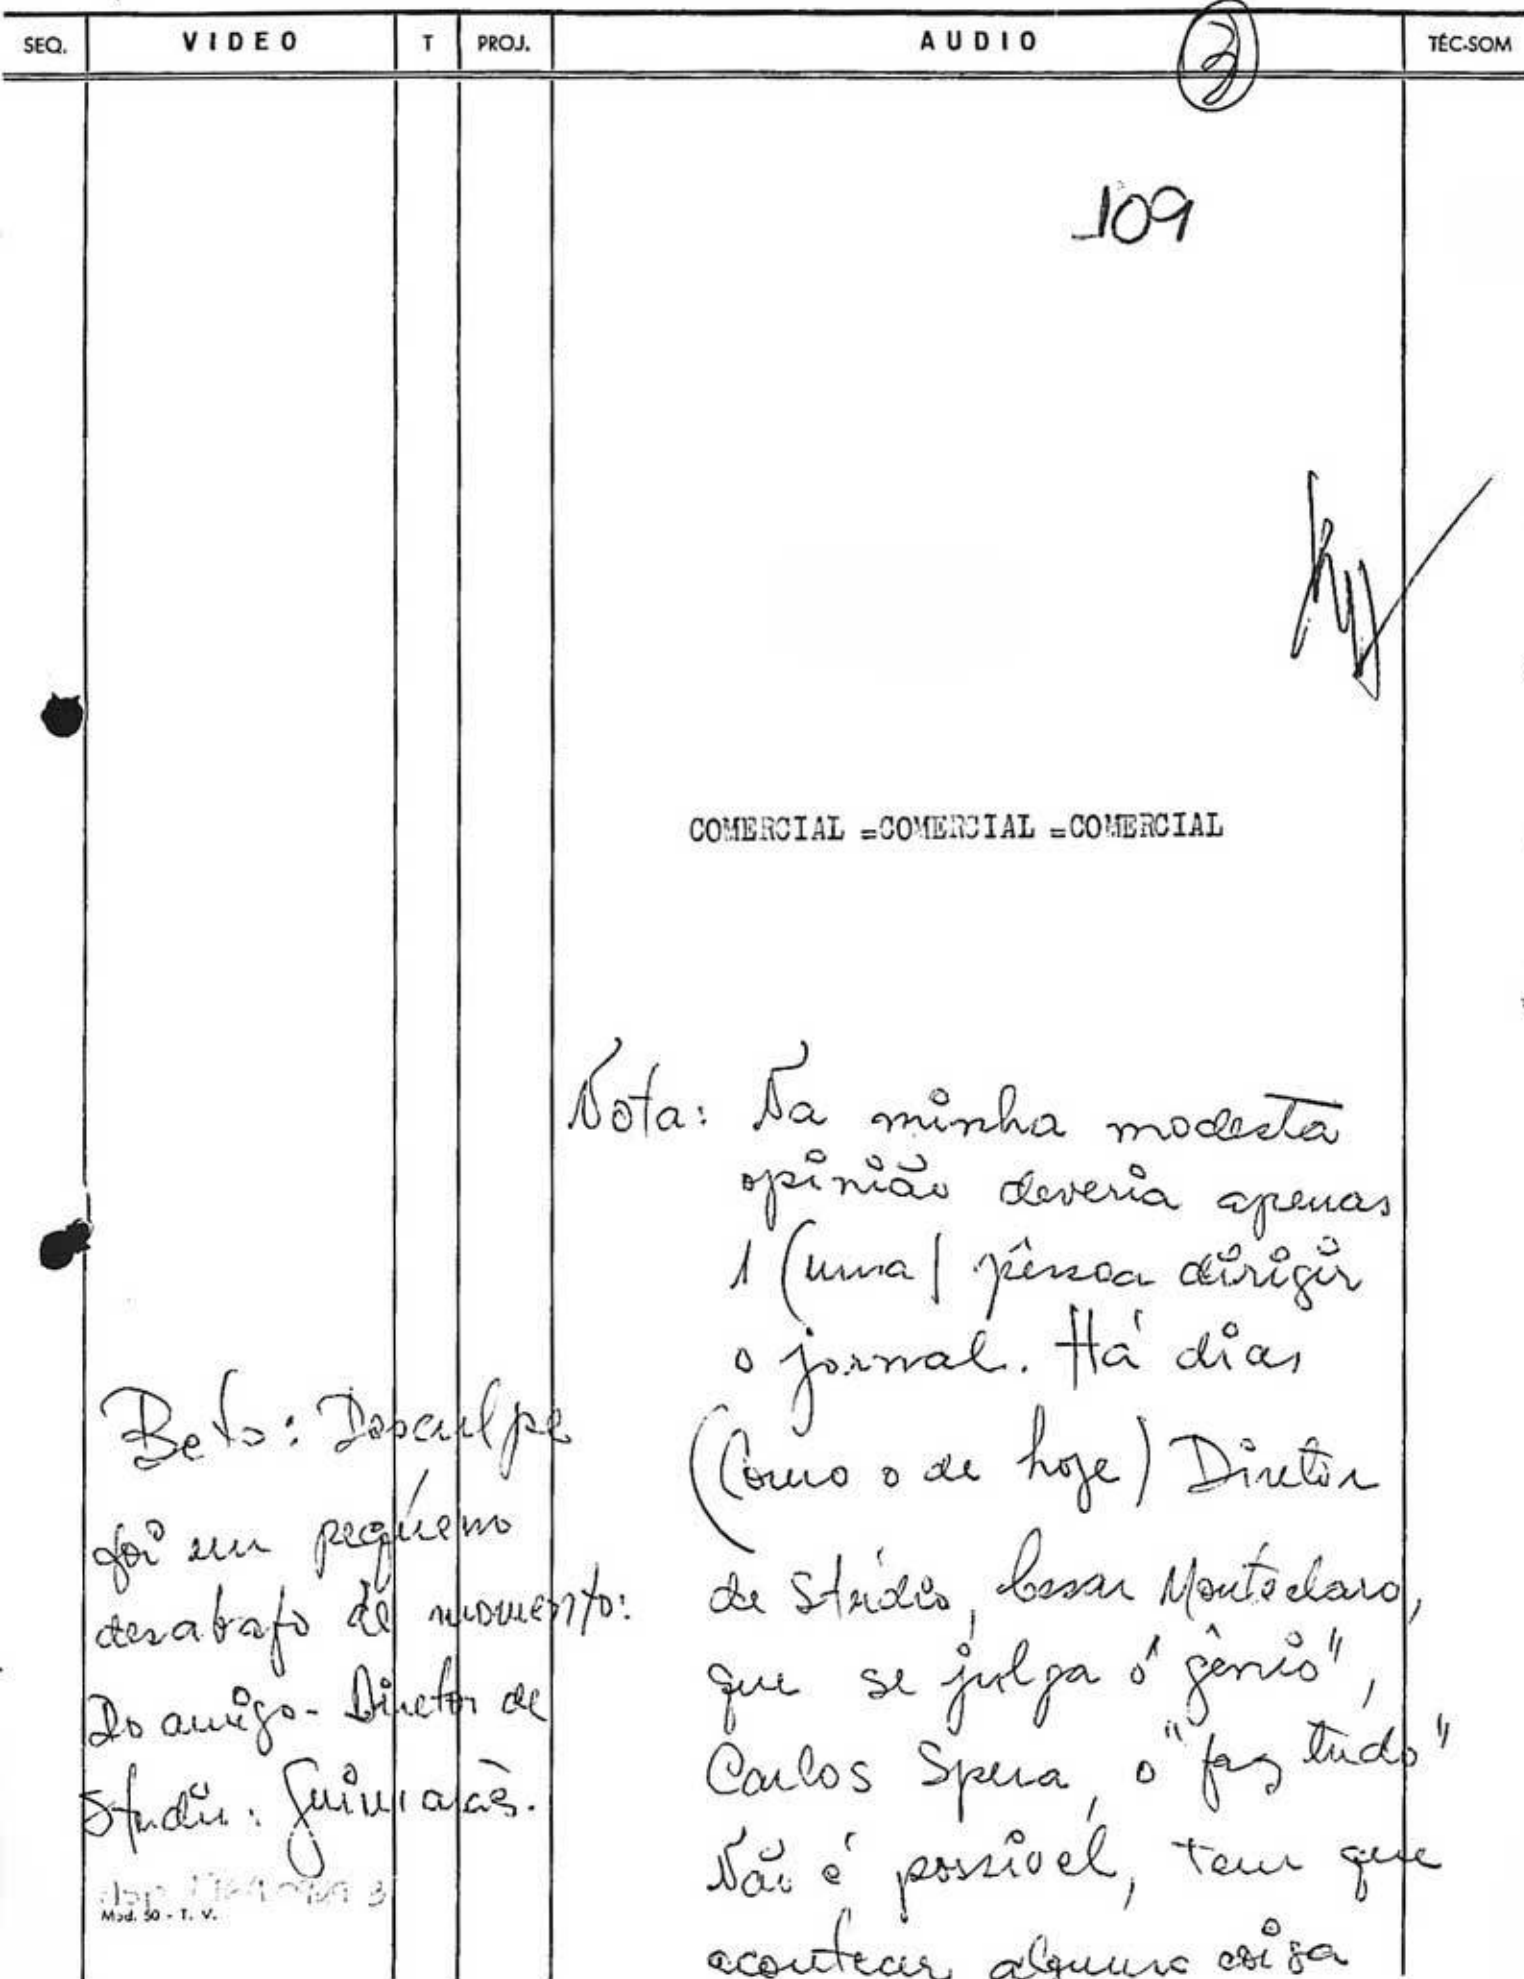 SEQ. VIDEO T PROJ. AUDIO TÉC-SOM
3
109
COMERCIAL =COMERCIAL =COMERCIAL
Nota: Na minha modesta
opinião deveria apenas
1 (uma) pêssoa dirigir
o jornal. Há dias
(Como o de hoje) Diretor
de Stúdio, Cesar Monteclaro,
que se julga o "gênio",
Carlos Spera, o "faz tudo"
Não é possivel, tem que
acontecer alguma coisa
Beto: Desculpe
foi um pequeno
desabafo de momento:
Do amigo - Diretor de
Studio: Guimarães.
Mod. 50 - T. V.